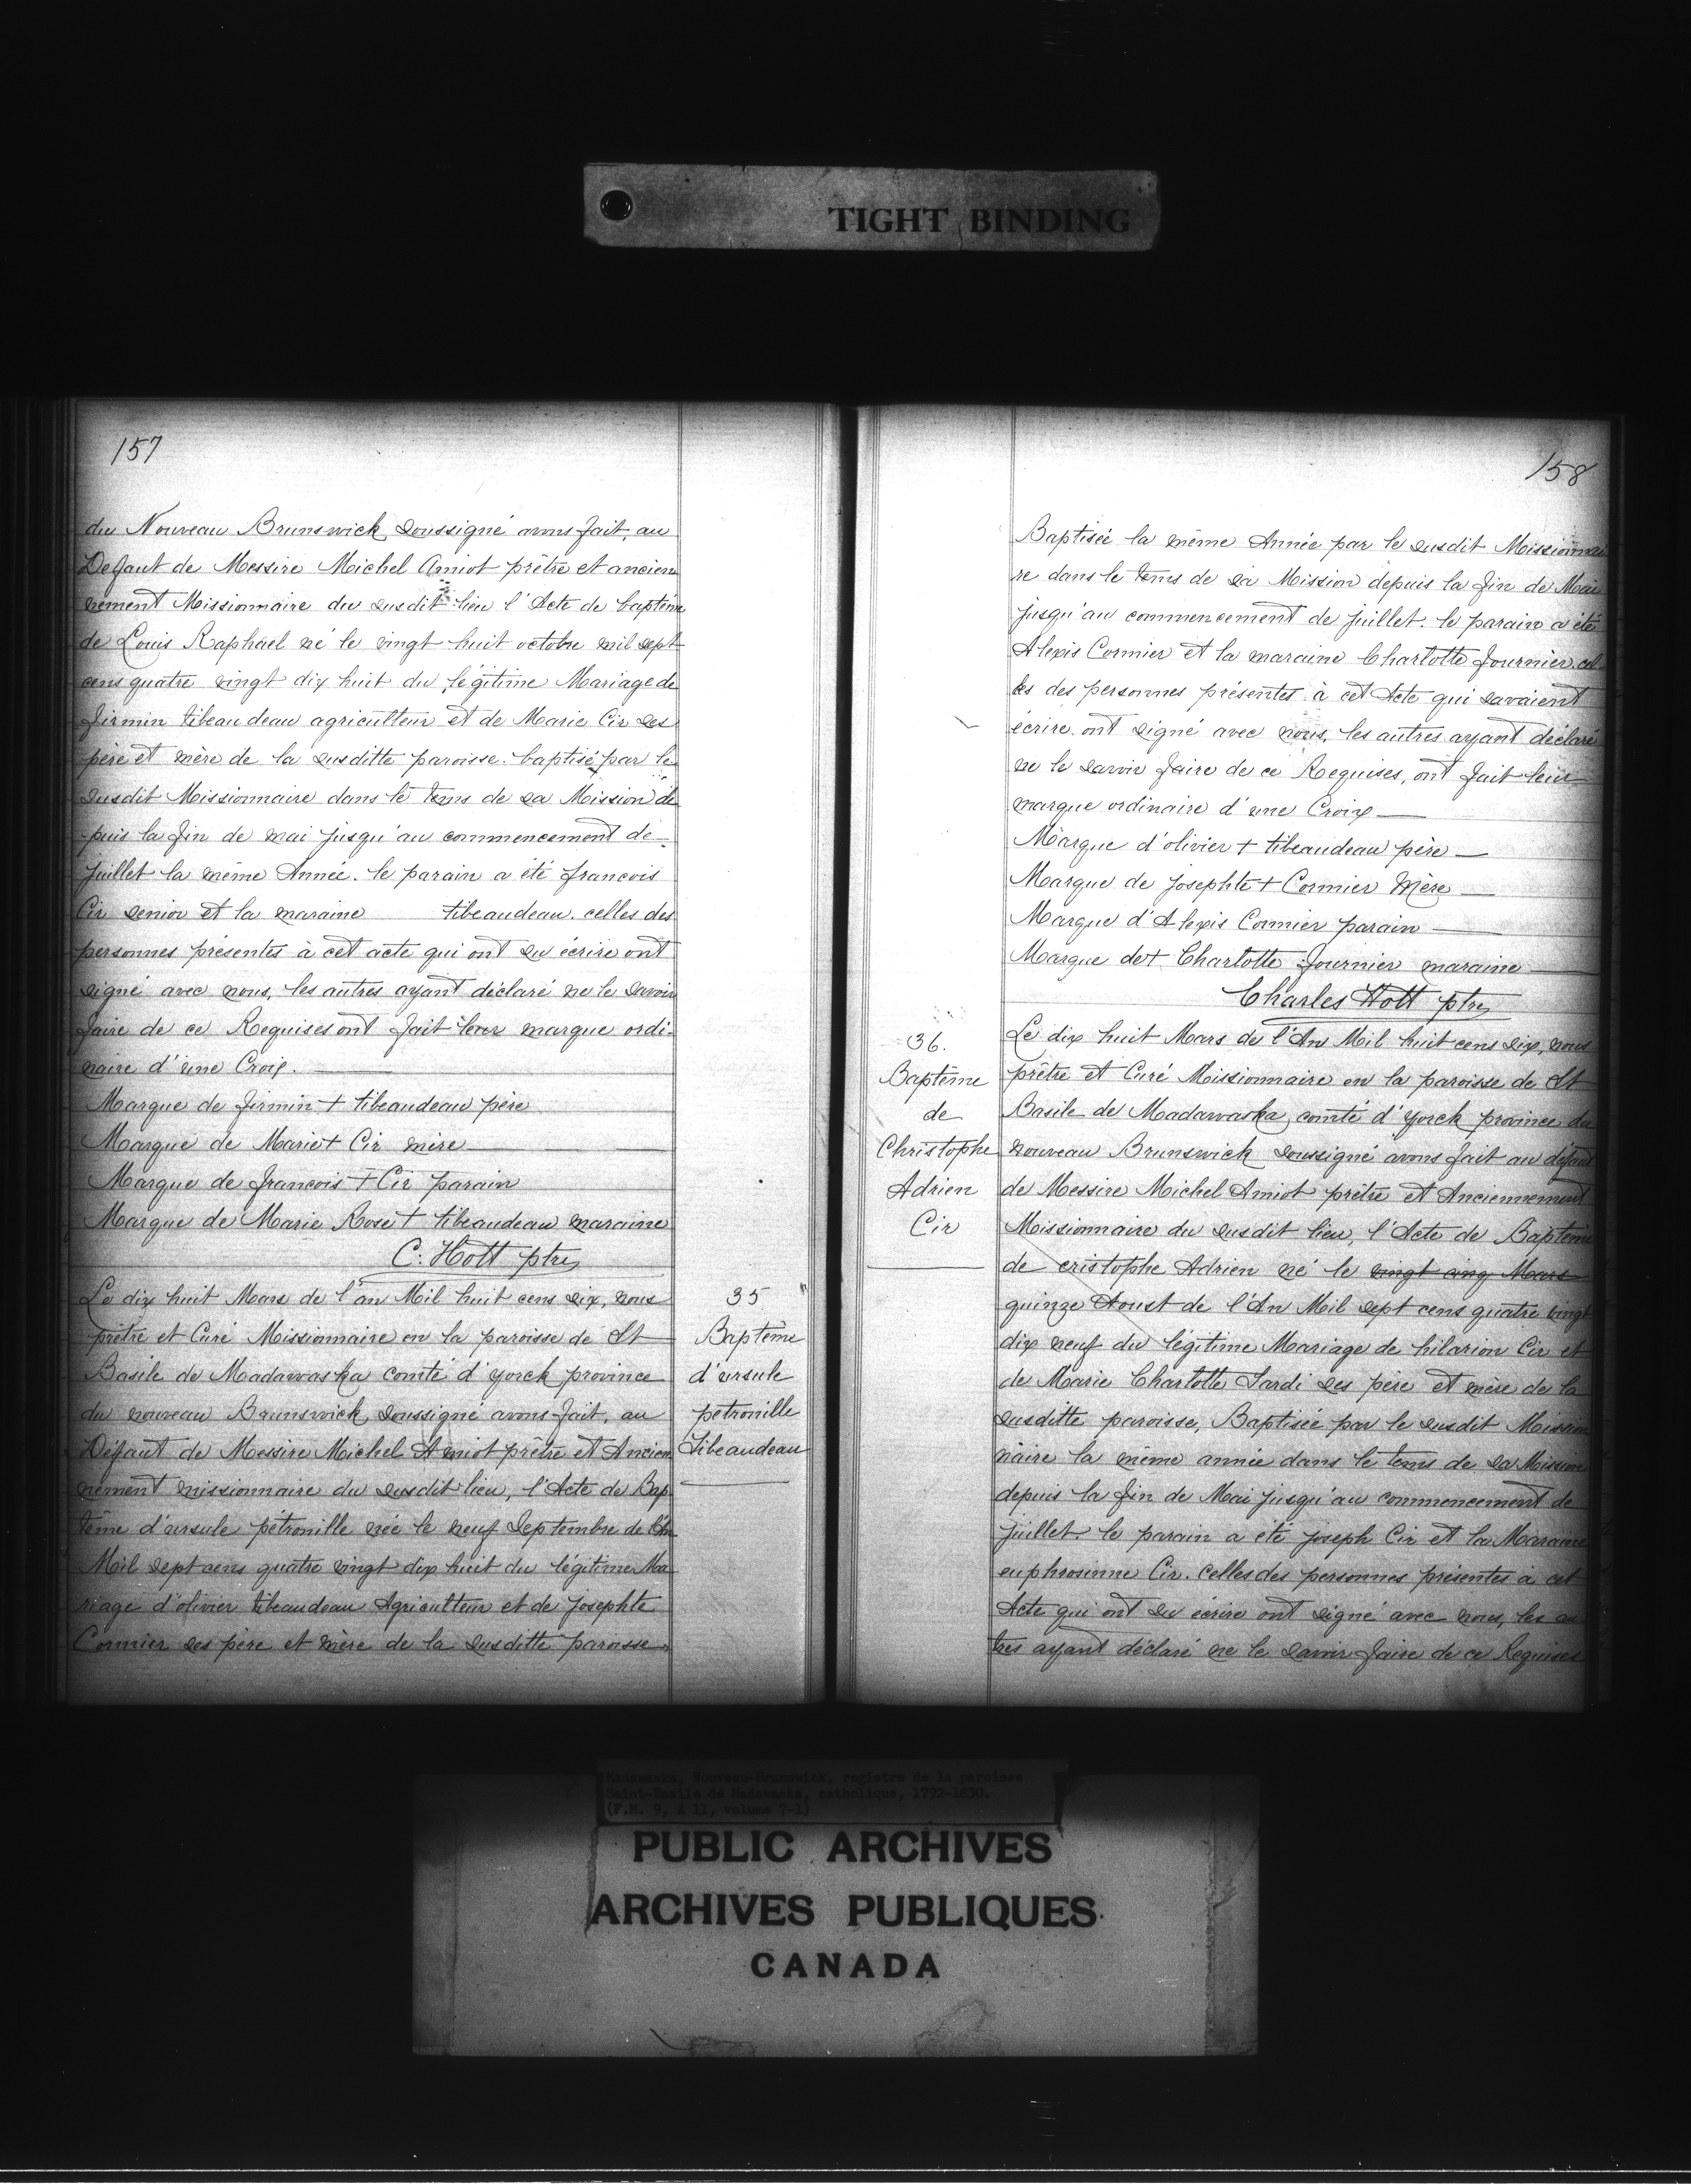 TIGHT BINDING
157
du Nouveau Brunswick soussigné avons fait, au
Defaut de Messire Michel Amiot prêtre et ancien
nement Missionnaire du susdit lieu l'Acte de baptême
de Louis Raphael né le vingt huit octobre mil sept
cens quatre vingt dix huit du légitime Mariage de
firmin tibeaudeau agriculteur et de Marie Cir ses
père et mère de la susditte paroisse. baptisé par le
susdit Missionnaire dans le tems de sa Mission de
puis la fin de mai jusqu'au commencement de
juillet la même Année. le parain a été francois
Cir senior et la maraine tibeaudeau. celles des
personnes présentes à cet acte qui ont su écrire ont
signé avec nous, les autres ayant déclaré ne le savoir
faire de ce Requises ont fait leur marque ordi-
naire d'une Croix.
Marque de firmin + tibeaudeau père
Marque de Marie + Cir mère
Marque de francois + Cir parain
Marque de Marie Rose + tibeaudeau maraine
C. Hott ptre
35
Baptême
d'ursule
petronille
Tibeaudeau
Le dix huit Mars de l'an Mil huit cens dix, nous
prêtre et Curé Missionnaire en la paroisse de St
Basile de Madawaska comté d'yorck province
du nouveau Brunswick, soussigné avons fait, au
Défaut de Messire Michel Amiot prêtre et Ancien
nement missionnaire du susdit lieu, l'Acte de Bap
tême d'ursule pétronille née le neuf Septembre de l'An
Mil sept cens quatre vingt dix huit du légitime Ma
riage d'olivier tibeaudeau Agriculteur et de josephte
Cormier ses père et mère de la susditte paroisse,
158
Baptisée la même Année par le susdit Missionnai
re dans le tems de sa Mission depuis la fin de Mai
jusqu'au commencement de juillet. le parain a été
Alexis Cormier et la maraine Charlotte fournier. cel
les des personnes présentes à cet Acte qui savaient
écrire ont signé avec nous, les autres ayant déclaré
ne le savoir faire de ce Requises, ont fait leur
marque ordinaire d'une Croix
Marque d'olivier + tibeaudeau père
Marque de josephte + Cormier Mère
Marque d'Alexis Cormier parain
Marque de + Charlotte fournier maraine
Charles Hott ptre
36.
Baptême
de
Christophe
Adrien
Cir
Le dix huit Mars de l'An Mil huit cens dix, nous
prêtre et Curé Missionnaire en la paroisse de St
Basile de Madawaska, comté d'yorck province du
nouveau Brunswick soussigné avons fait au défaut
de Messire Michel Amiot prêtre et Anciennement
Missionnaire du susdit lieu, l'Acte de Baptême
de cristophe Adrien né le vingt cinq Mars
quinze Aoust de l'An Mil sept cens quatre vingt
dix neuf du légitime Mariage de hilarion Cir et
de Marie Charlotte Tardi ses père et mère de la
susditte paroisse, Baptisée par le susdit Mission
naire la même année dans le tems de sa Mission
depuis la fin de Mai jusqu'au commencement de
juillet. le parain a été joseph Cir et la Maraine
euphrosinne Cir. Celles des personnes présentes à cet
Acte qui ont su écrire ont signé avec nous, les au
tres ayant déclaré ne le savoir faire de ce Requises
Madawaska, Nouveau-Brunswick, registre de la paroisse
Saint-Basile de Madawaska, catholique, 1792-1830.
(F.M. 9, A 11, volume 7-1)
PUBLIC ARCHIVES
ARCHIVES PUBLIQUES
CANADA